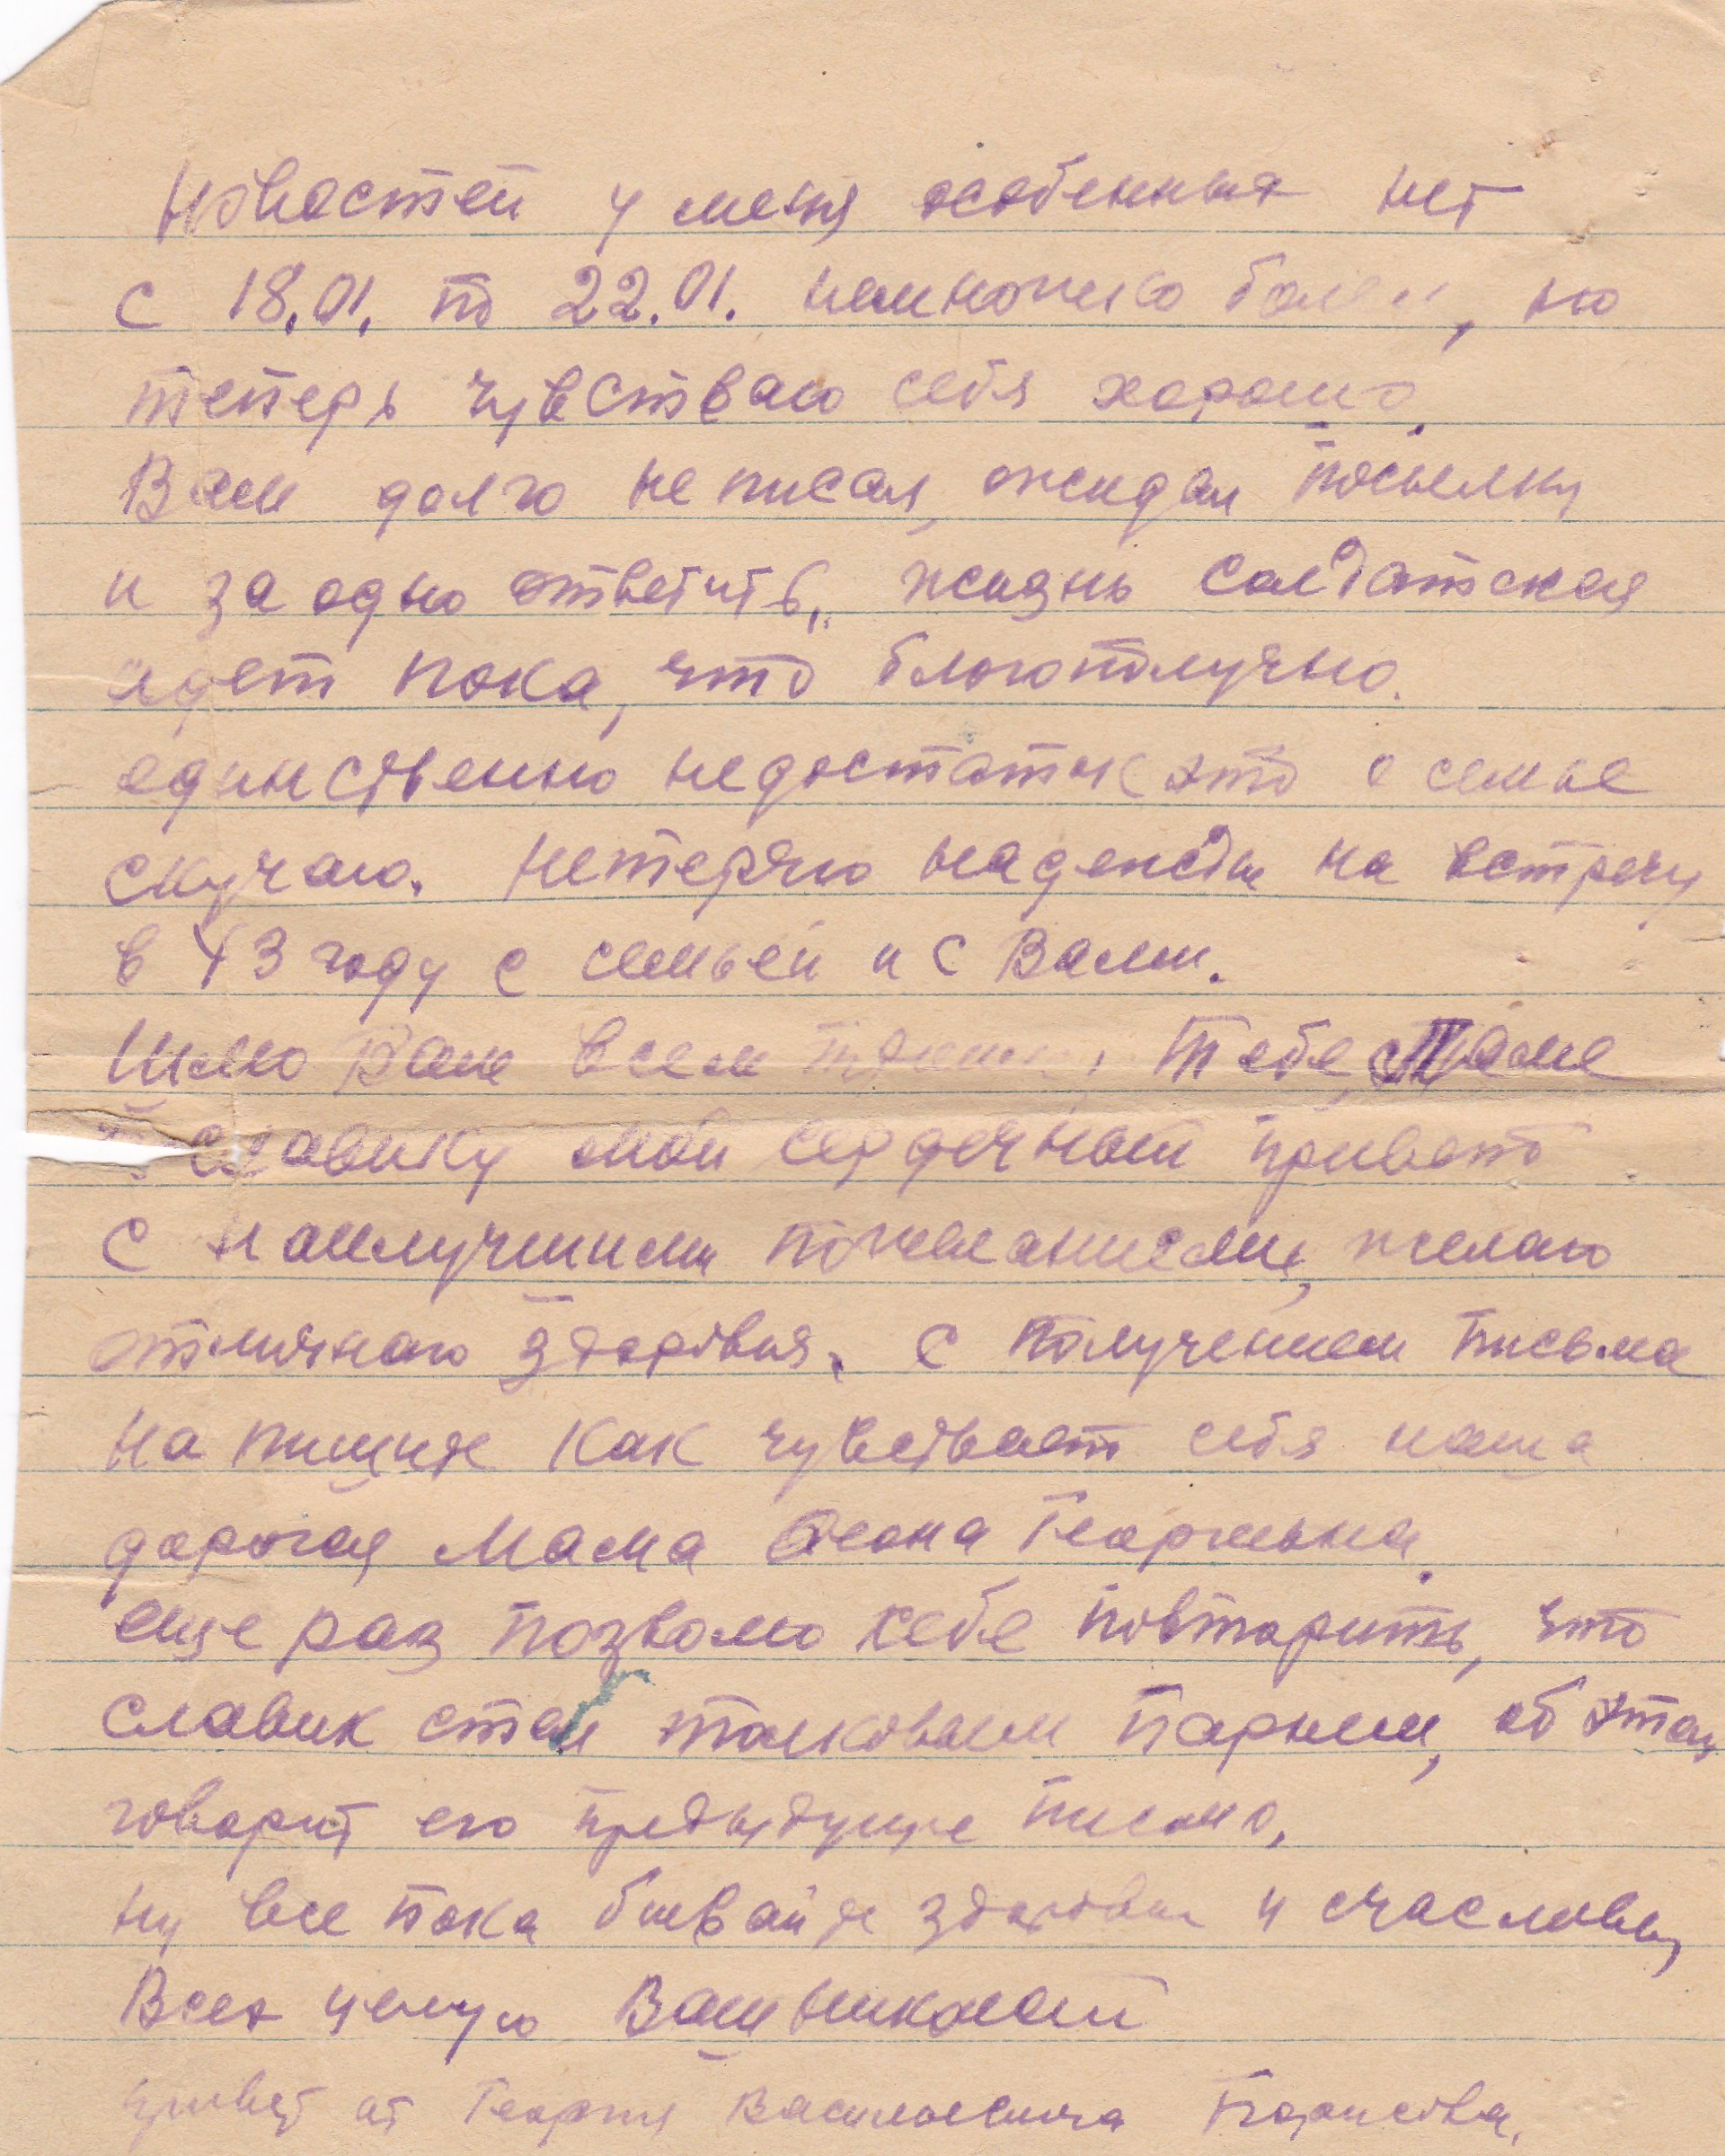 Новостей у меня особенных нет
с 18.01. по 22.01. немножко болел, но
теперь чувстваю себя хорошо.
Вам долго не писал, ожидал посылку
и за одно ответить, жизнь солдатская
идет пока, что благополучно.
единственно недостаток это о семье
скучаю. Нетеряю надежды на встречу
в 43 году с семьей и с Вами.
Шлю Вам всем Тебе, Маме
Славику мой сердечный привет
с наилучшими пожеланиями, желаю
отличного здоровья. С получением письма
напишите как чувствает себя наша
дорогая Мама Георгиевна.
еще раз позволю себе повторить, что
Славик стал толковым парнем, об этом
говорит его предыдущие письмо,
ну все пока бывайте здоровы и счасливы,
Всех целую Ваш Николай
привет от Георгия Васильевича Борисова.